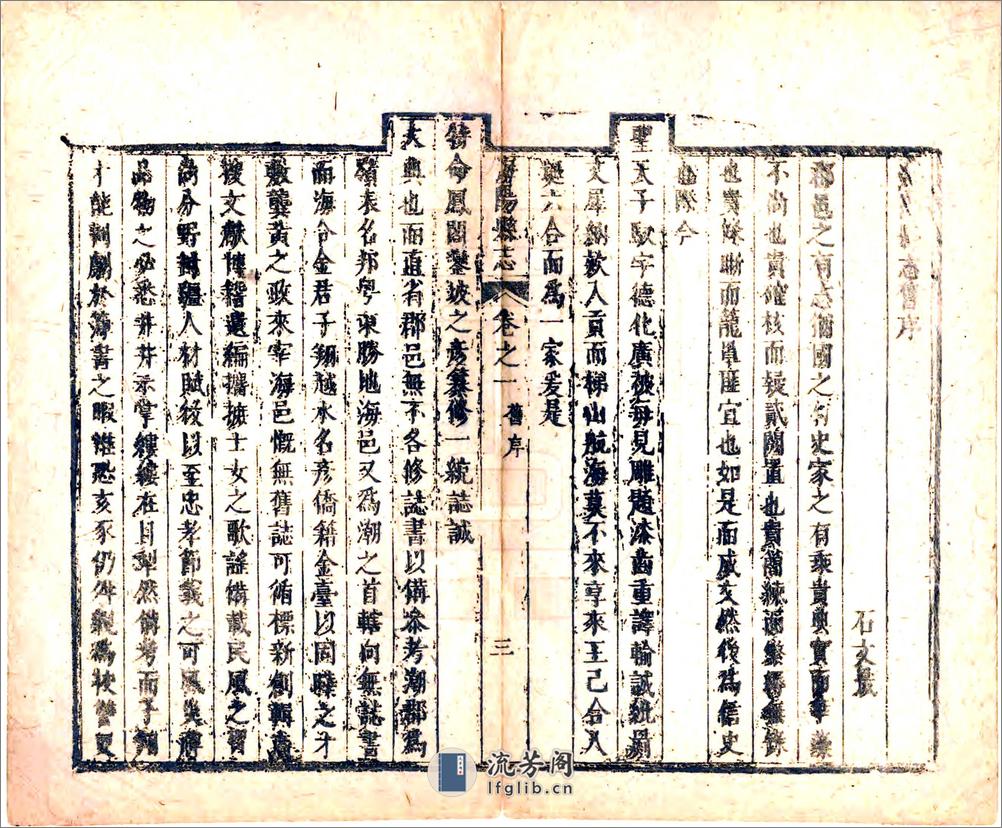 舊序
石文晟
郡邑之有志猶國之有史家之有乘貴典實而華藻
不尚也貴確核而疑貳闕置也貴簡練而繁縟無錄
也貴條晰而籠單匪宜也如是而咸文然後為信史
也際今
聖天子馭宇德化廣被每見雕題漆齒重譯輸誠統屬
文犀納欵入貢而梯山航海莫不來享來王已合八
埏六合而為一家爰是
海陽縣志 卷之一 舊序 三
特命鳳閣鑾坡之彥纂修一統誌誠
大典也而直省郡邑無不各修誌書以備參考潮郡為
嶺表名邦粵東勝地海邑又為潮之首轄何無誌書
而海令金君子 越水名彥僑籍金臺以固 之才
敷龔黃之政來宰海邑慨無舊誌可循標新創輯
搜文獻博稽遺編攟摭士女之歌謠備載民風之習
尚分野 疆人材賦役以至忠孝節義之可風
品物之必悉井井示掌縷縷在目犁然備考而予
才能剞劂於簿書之暇 恐亥豕仍 為 更
流芳阁
lfglib.cn